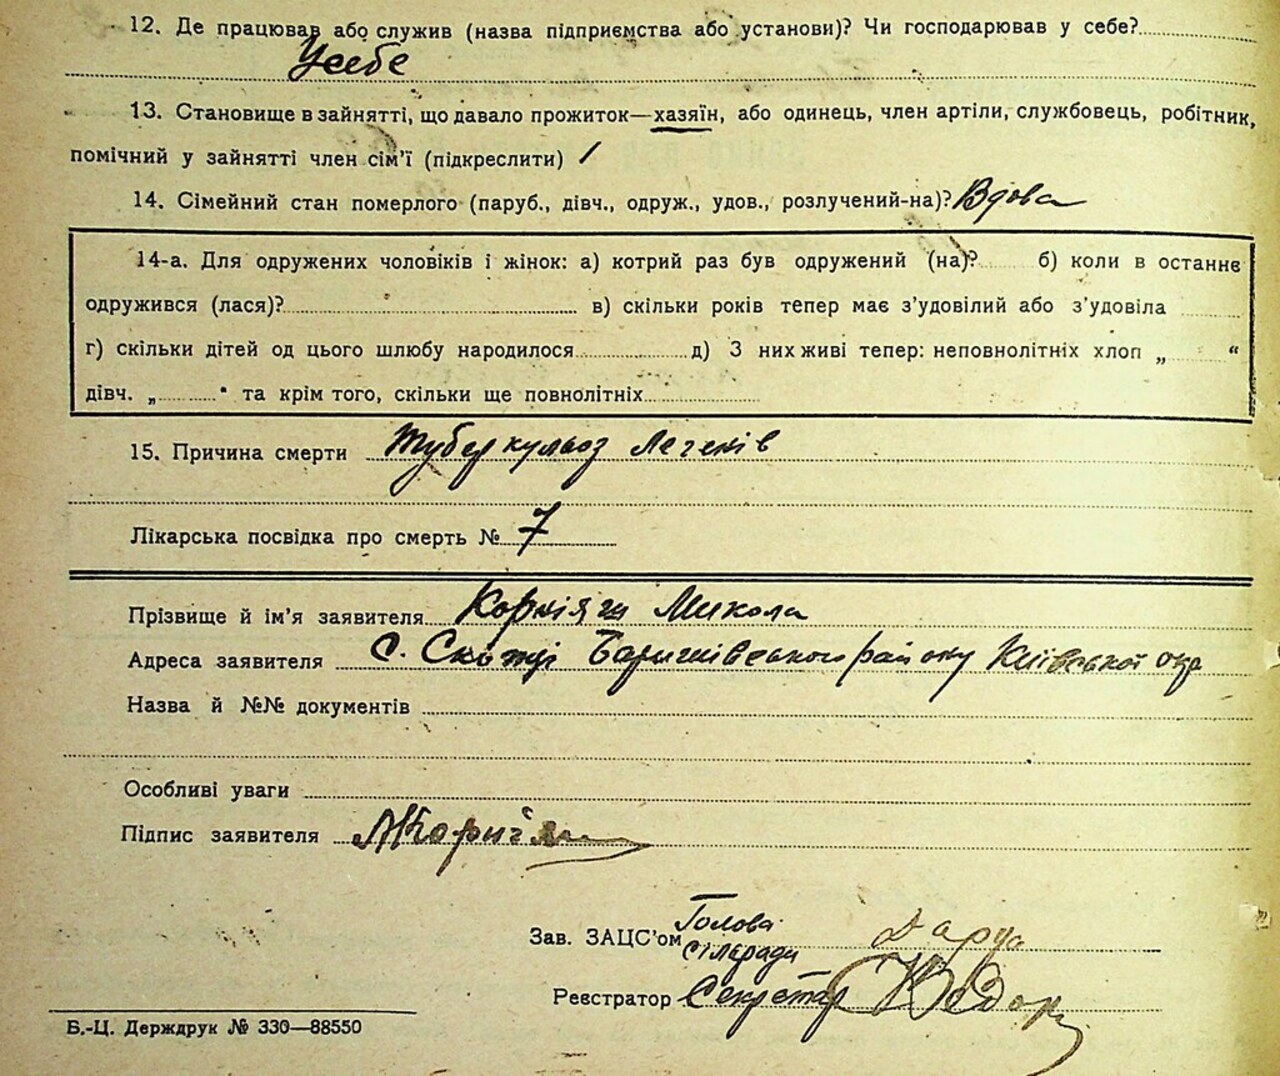 12. Де працював або служив (назва підприємства або установи)? Чи господарював у себе?
У себе
13. Становище в зайнятті, що давало прожиток—хазяїн, або одинець, член артіли, службовець, робітник,
помічний у зайнятті член сім'ї (підкреслити) /
14. Сімейний стан померлого (паруб., дівч., одруж., удов., розлучений-на)? Вдова
14-а. Для одружених чоловіків і жінок: а) котрий раз був одружений (на)? б) коли в останнє
одружився (лася)? в) скільки років тепер має з'удовілий або з'удовіла
г) скільки дітей од цього шлюбу народилося д) З них живі тепер: неповнолітніх хлоп „ “
дівч. „ “ та крім того, скільки ще повнолітніх
15. Причина смерти Туберкульоз Легенів
Лікарська посвідка про смерть № 7
Прізвище й ім'я заявителя Микола
Адреса заявителя с. Баришівського району Київської окр
Назва й №№ документів
Особливі уваги
Підпис заявителя
Зав. ЗАЦС'ом Голова
сільради
Реєстратор Секретар
Б.-Ц. Держдрук № 330—88550